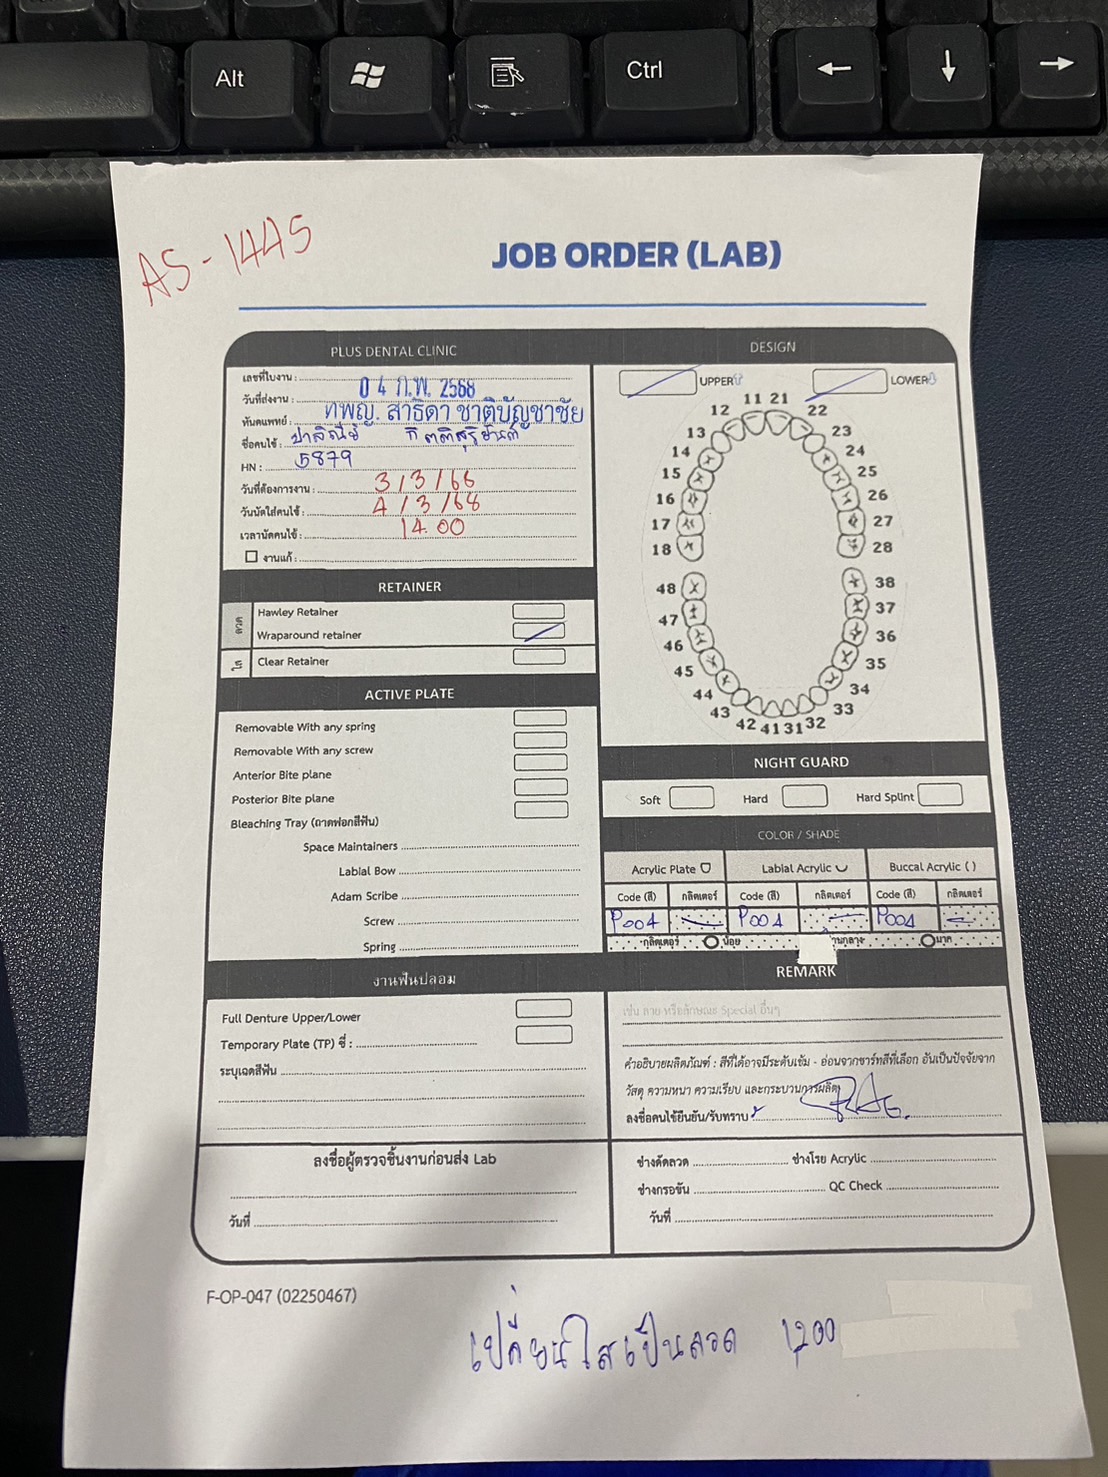 Alt
Ctrl
AS-1445
JOB ORDER (LAB)
PLUS DENTAL CLINIC
เลขที่ใบงาน :
วันที่ส่งงาน : 04 ก.พ. 2568
ทันตแพทย์ : ทพญ. สาธิดา ชาติบัญชาชัย
ชื่อคนไข้ :
HN : 5879
วันที่ต้องการงาน : 3/3/68
วันนัดใส่คนไข้ : 4/3/68
เวลานัดคนไข้ : 14.00
งานแก้ :
RETAINER
ลวด
Hawley Retainer
Wraparound retainer
ใส
Clear Retainer
ACTIVE PLATE
Removable With any spring
Removable With any screw
Anterior Bite plane
Posterior Bite plane
Bleaching Tray (ถาดฟอกสีฟัน)
Space Maintainers
Labial Bow
Adam Scribe
Screw
Spring
งานฟันปลอม
Full Denture Upper/Lower
Temporary Plate (TP) ซี่ :
ระบุเฉดสีฟัน
DESIGN
UPPER LOWER
11 21
12 22
13 23
14 24
15 25
16 26
17 27
18 28
48 38
47 37
46 36
45 35
44 34
43 33
42 41 31 32
NIGHT GUARD
Soft Hard Hard Splint
COLOR / SHADE
Acrylic Plate Labial Acrylic Buccal Acrylic ( )
Code (สี) กลิตเตอร์ Code (สี) กลิตเตอร์ Code (สี) กลิตเตอร์
P004 P004 P004
กลิตเตอร์ น้อย านกลาง มาก
REMARK
เช่น ลาย หรือลักษณะ Special อื่นๆ
คำอธิบายผลิตภัณฑ์ : สีที่ได้อาจมีระดับเข้ม - อ่อนจากชาร์ทสีที่เลือก อันเป็นปัจจัยจาก
วัสดุ ความหนา ความเรียบ และกระบวนการผลิต
ลงชื่อคนไข้ยืนยัน/รับทราบ
ลงชื่อผู้ตรวจชิ้นงานก่อนส่ง Lab
วันที่
ช่างดัดลวด ช่างโรย Acrylic
ช่างกรอขัน QC Check
วันที่
F-OP-047 (02250467)
เปลี่ยนใสเป็นลวด 1,200